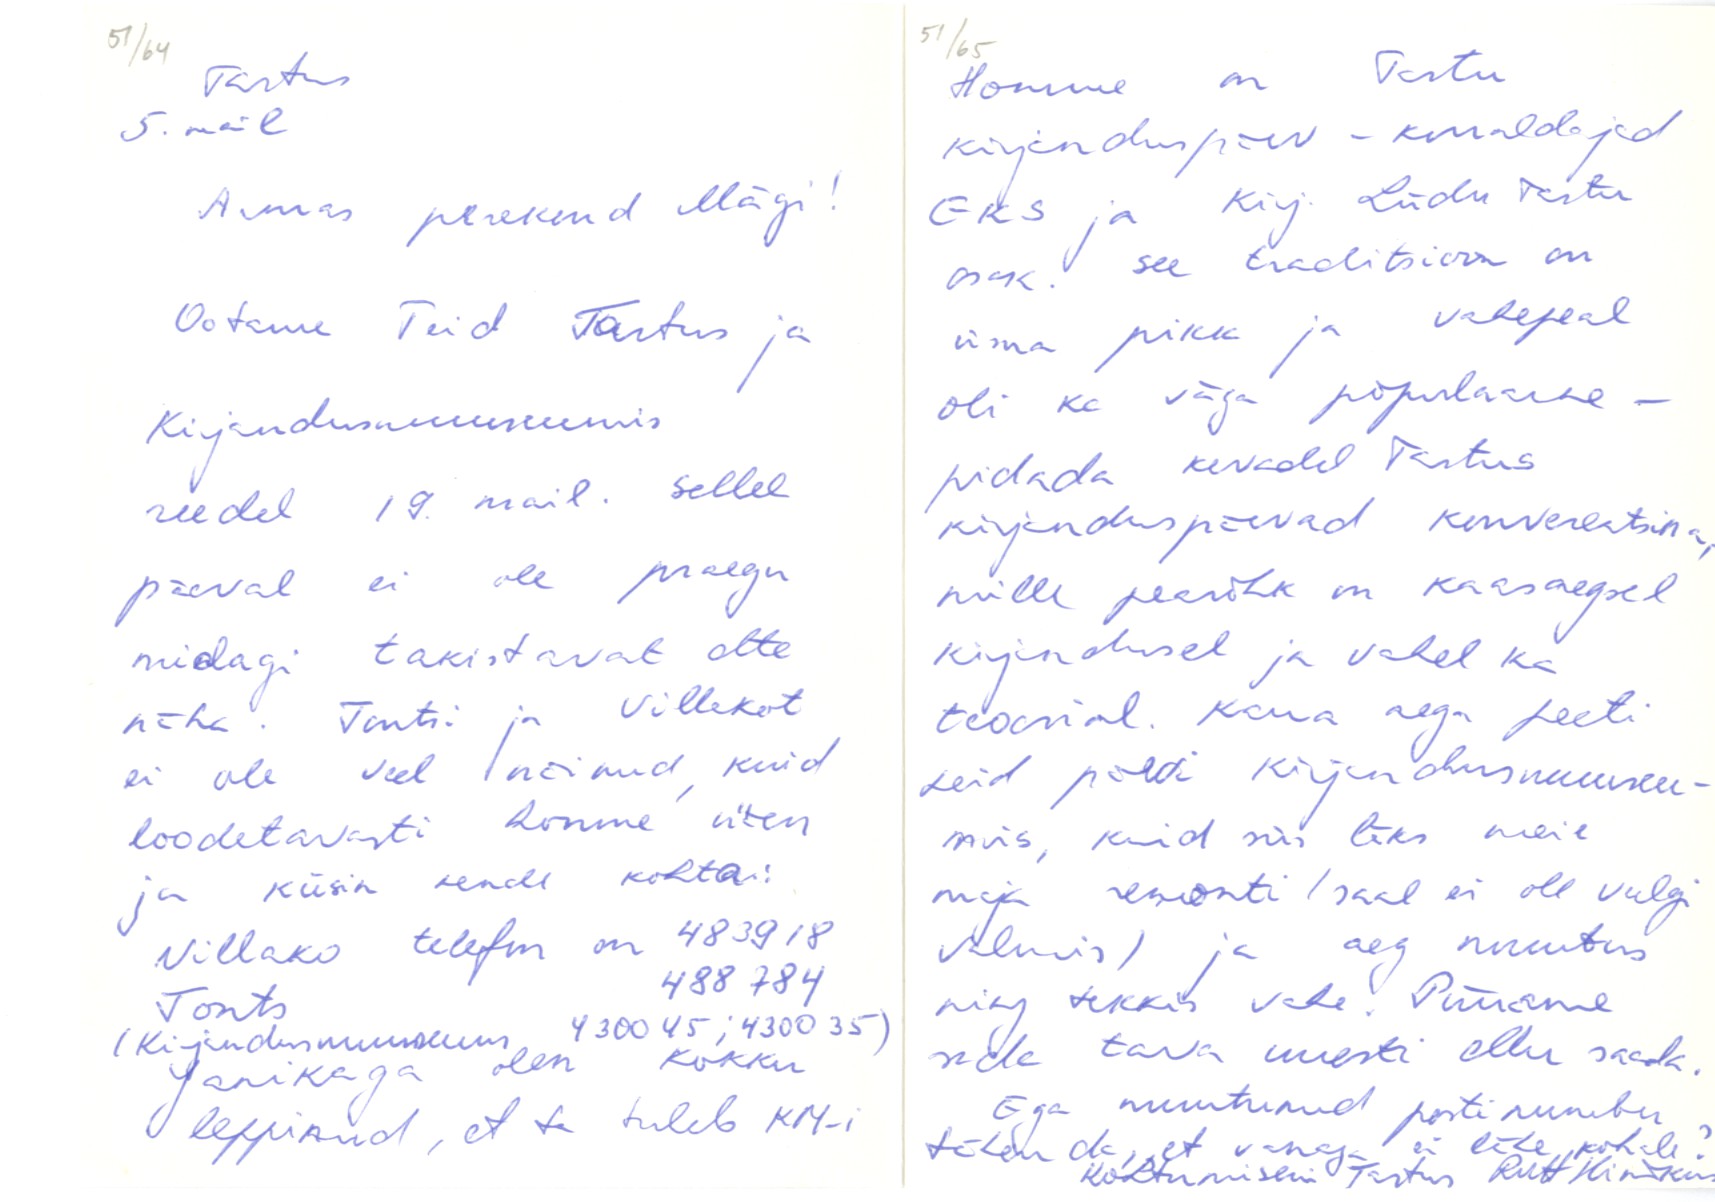 51/64
Tartus
5. mail
Armas perekond Mägi!
Ootame Teid Tartus ja
Kirjandusmuuseumis
reedel 19. mail. Sellel
päeval ei ole praegu
midagi takistavat ette
näha. Tontsi ja Villakot
ei ole veel näinud, kuid
loodetavasti homme näen
ja küsin nende kohta:
Villako telefon on 483918
488 784
Tonts
(Kirjandusmuuseum 430045; 430035)
Janikaga olen kokku
leppinud, et ta tuleb KM-i
51/65
Homme on Tartu
kirjanduspäev - korraldajad
EKS ja Kirj. Liidu Tartu
osak. See traditsioon on
üsna pikk ja vahepeal
oli ka väga populaarne -
pidada kevadel Tartus
kirjanduspäevad konverentsina,
mille pearõhk on kaasaegsel
kirjandusel ja vahel ka
teoorial. Kaua aega peeti
neid päevi Kirjandusmuuseu-
mis, kuid siis läks meie
maja remonti (saal ei ole vulgi
valmis) ja aeg muutus
ning tekkis vahe. Püüame
seda tava uuesti ellu saada.
Ega muutunud postinumber
tähenda, et vanaga ei lähe kohale?
Kohtumiseni Tartus Rutt Hinrikus